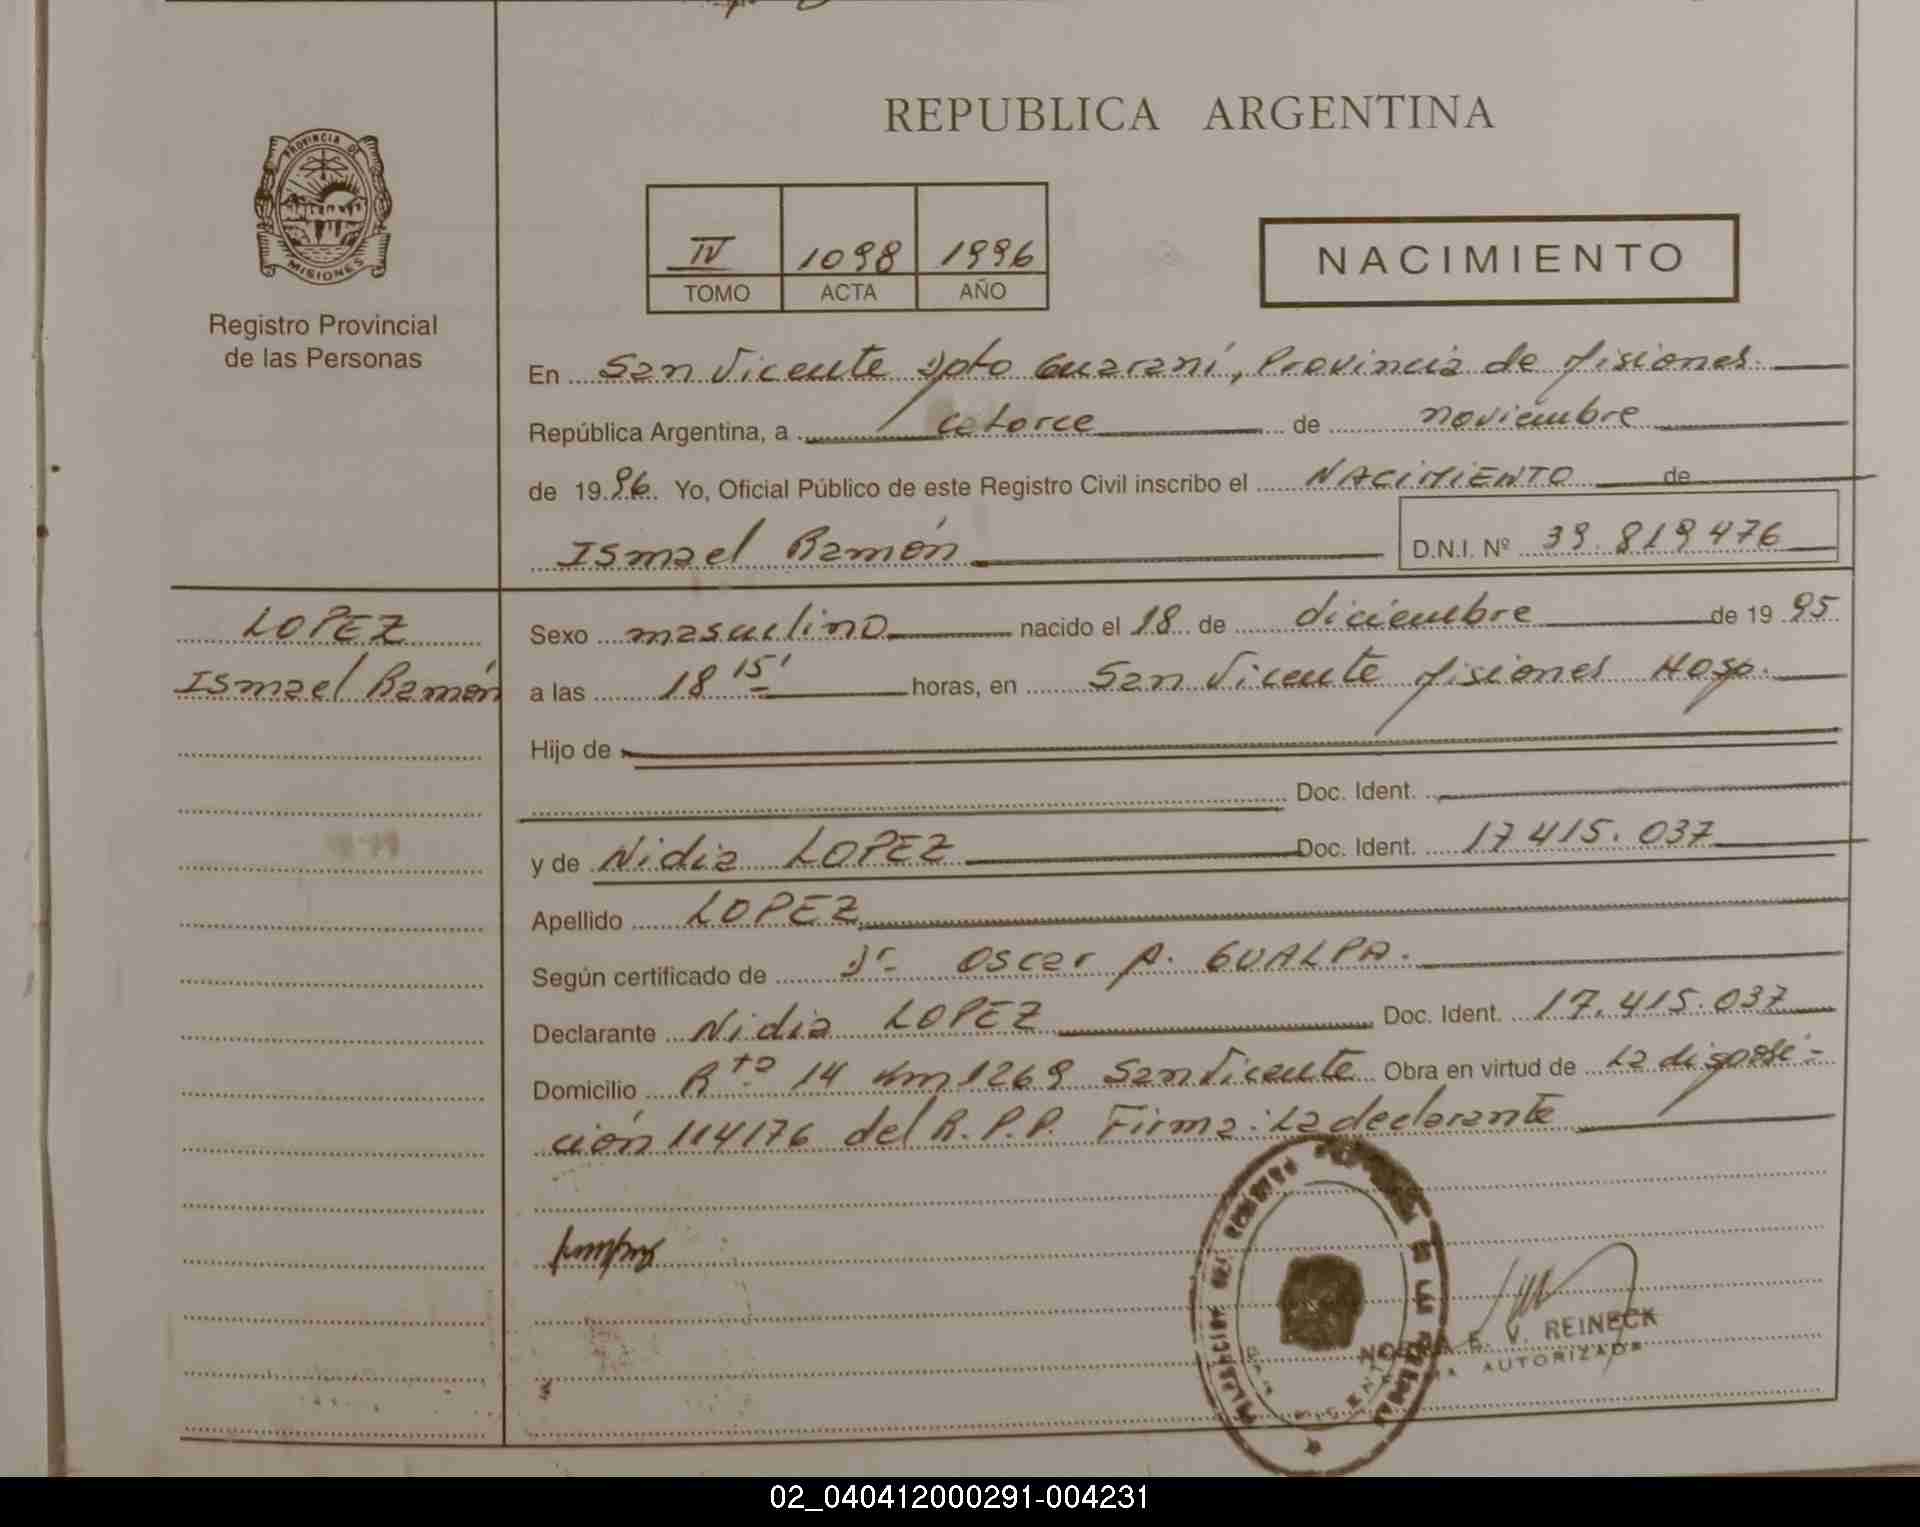 REPUBLICA ARGENTINA
PROVINCIA DE
MISIONES
Registro Provincial
de las Personas
IV 1098 1996
TOMO ACTA AÑO
NACIMIENTO
En San Vicente Dpto Guaraní, Provincia de Misiones.
República Argentina, a catorce de noviembre
de 1996. Yo, Oficial Público de este Registro Civil inscribo el NACIMIENTO de
Ismael Ramón D.N.I. Nº 39.819476
LOPEZ
Ismael Ramón
Sexo masculino nacido el 18 de diciembre de 1995
a las 18 15' horas, en San Vicente Misiones Hosp.
Hijo de
Doc. Ident.
y de Nidia LOPEZ Doc. Ident. 17415.037
Apellido LOPEZ
Según certificado de Dr Oscar A. GUALPA.
Declarante Nidia LOPEZ Doc. Ident. 17.415.037
Domicilio Rta 14 Km 1269 San Vicente Obra en virtud de la disposi-
ción 114176 del R.P.P. Firma: La declarante
V. REINECK
AUTORIZADA
02_040412000291-004231